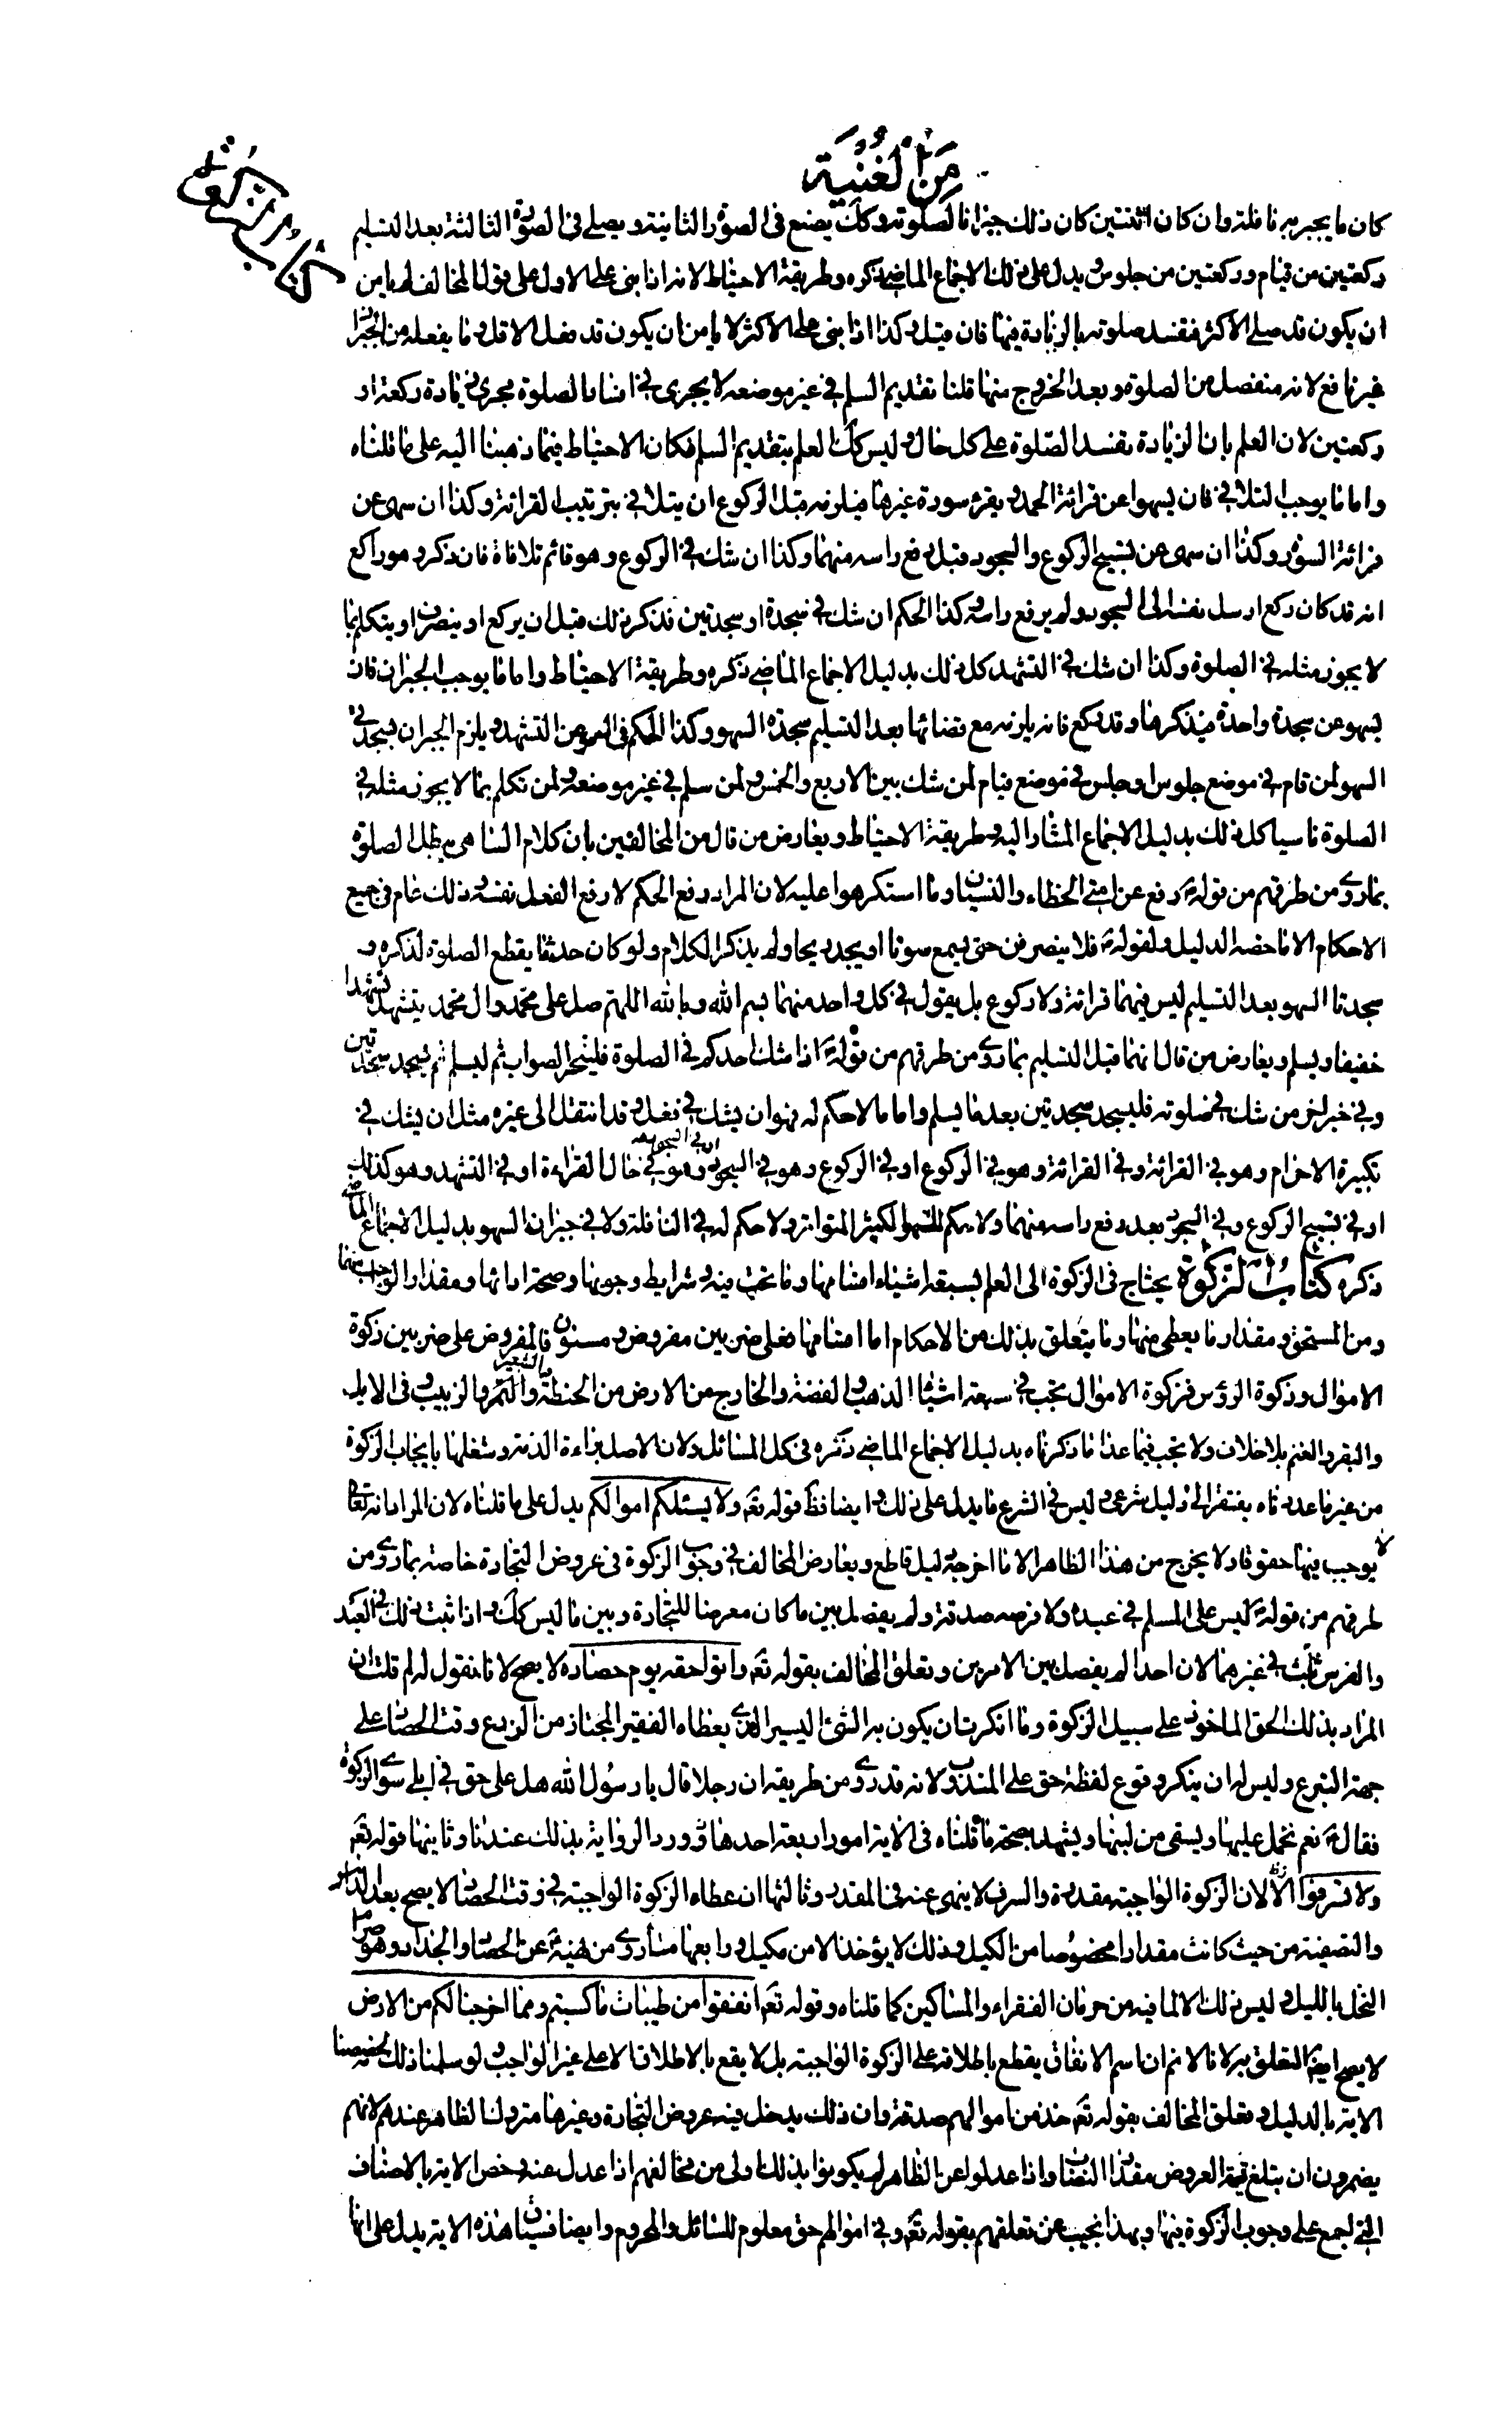 من الغنية
كتاب الزكوة
كان ما يجبر به نافلة وان كان اثنتين كان ذلك جبرانا لصلوته وكك يصنع في الصورة الثانية ويصلي في الصورة الثالثة بعد التسليم
ركعتين من قيام وركعتين من جلوس يدل على ذلك الاجماع الماضي ذكره وطريقة الاحتياط لانه اذا بنى على الاول على قول المخالف لم يامن
ان يكون قد صلى الاكثر فتفسد صلوته بالزيادة فيها فان قيل وكذا اذا بنى على الاكثر لا يامن ان يكون قد فعل الاقل وما يفعله من الجبران
غير نافع لانه منفصل من الصلوة وبعد الخروج منها قلنا تقديم السلم في غير موضعه لا يجري في افساد الصلوة مجرى زيادة ركعة او
ركعتين لان العلم بان الزيادة تفسد الصلوة على كل حال وليس كك العلم بتقديم السلم فكان الاحتياط فيما ذهبنا اليه على ما قلناه
واما ما يوجب التلافي فان يسهوا عن قرائة الحمد ويقرء سورة غيرها فيلزمه قبل الركوع ان يتلافى بترتيب القرائة وكذا ان سهى عن
قرائة السورة وكذا ان سهى عن تسبيح الركوع والسجود قبل رفع راسه منهما وكذا ان شك في الركوع وهو قائم تلافاه فان ذكر وهو راكع
انه قد كان ركع ارسل نفسه الى السجود ولم يرفع راسه وكذا الحكم ان شك في سجدة او سجدتين فذكر ذلك قبل ان يركع او ينصرف او يتكلم بما
لا يجوز مثله في الصلوة وكذا ان شك في التشهد كل ذلك بدليل الاجماع الماضي ذكره وطريقة الاحتياط واما ما يوجب الجبران فان
يسهو عن سجدة واحدة فيذكرها وقد ركع فانه يلزمه مع قضائها بعد التسليم سجدة السهو وكذا الحكم في السهو عن التشهد ويلزم الجبران بسجدتي
السهو لمن قام في موضع جلوس او جلس في موضع قيام لمن شك بين الاربع والخمس ولمن سلم في غير موضعه ولمن تكلم بما لا يجوز مثله في
الصلوة ناسيا كل ذلك بدليل الاجماع المشار اليه وطريقة الاحتياط ويعارض من قال من المخالفين بان كلام الساهي يبطل الصلوة
بما روي من طرقهم من قوله رفع عن امتي الخطاء والنسيان وما استكرهوا عليه لان المراد رفع الحكم لا رفع الفعل نفسه وذلك عام في جميع
الاحكام الا ما خصه الدليل ولقوله فلا ينصرفن حتى يسمع صوتا او يجد ريحا ولم يذكر الكلام ولو كان حدثا يقطع الصلوة لذكره و
سجدتا السهو بعد التسليم ليس فيهما قرائة ولا ركوع بل يقول في كل واحد منهما بسم الله وبالله اللهم صل على محمد وال محمد يتشهد تشهدا
خفيفا ويسلم ويعارض من قال انهما قبل التسليم بما روي من طرقهم من قوله اذا شك احدكم في الصلوة فليتحر الصواب ثم ليسلم ثم يسجد سجدتين
وفي خبر اخر من شك في صلوته فليسجد سجدتين بعد ما يسلم واما ما لا حكم له فهو ان يشك في فعل وقد انتقل الى غيره مثل ان يشك في
تكبيرة الاحرام وهو في القرائة وفي القرائة وهو في الركوع او في الركوع وهو في السجود او في السجود وهو في حال القراءة او في التشهد وهو كذلك
او في تسبيح الركوع وفي السجود بعد رفع راسه منهما ولا حكم للسهو الكثير المتواتر ولا حكم له في النافلة ولا في جبران السهو بدليل الاجماع الماضي
ذكره كتاب الزكوة يحتاج في الزكوة الى العلم بسبعة اشياء اقسامها وما تجب فيه وشرايط وجوبها وصحة ادائها ومقدار الواجب منها
ومن المستحق ومقدار ما يعطى منها وما يتعلق بذلك من الاحكام اما اقسامها فعلى ضربين مفروض ومسنون فالمفروض على ضربين زكوة
الاموال وزكوة الرؤس فزكوة الاموال تجب في سبعة اشياء الذهب والفضة والخارج من الارض من الحنطة والشعير والتمر والزبيب وفي الابل
والبقر والغنم بلا خلاف ولا تجب فيما عدا ما ذكرناه بدليل الاجماع الماضي ذكره في كل المسائل ولان الاصل براءة الذمة وشغلها بايجاب الزكوة
من غير ما عددناه يفتقر الى دليل شرعي وليس في الشرع ما يدل على ذلك وايضا فظ قوله تعم ولا يسئلكم اموالكم يدل على ما قلناه لان المراد انه تعالى
لا يوجب فيها حقوقا ولا يخرج من هذا الظاهر الا ما اخرجه دليل قاطع ويعارض المخالف في وجوب الزكوة في عروض التجارة خاصة بما روي من
طرقهم من قوله ليس على المسلم في عبده ولا فرسه صدقة ولم يفصل بين ما كان معرضا للتجارة وبين ما ليس كك واذا ثبت ذلك في العبد
والفرس ثبت في غيرهما لان احدا لم يفصل بين الامرين وتعلق المخالف بقوله تعم واتوا حقه يوم حصاده لا يصح لانا نقول له لم قلت ان
المراد بذلك الحق الماخوذ على سبيل الزكوة وما انكرت ان يكون به الشئ اليسير الذي يعطاه الفقير المجتاز من الزرع وقت الحصاد على
جهة التبرع وليس له ان ينكر وقوع لفظة حق على المندوب لانه قد روي من طريقه ان رجلا قال يا رسول الله هل علي حق في ابلي سوى الزكوة
فقال نعم تحمل عليها ويسقى من لبنها ويشهد بصحة ما قلناه في الاية امور اربعة احدها ورود الرواية بذلك عندنا وثانيها قوله تعم
ولا تسرفوا لان الزكوة الواجبة مقدرة والسرف لا ينهى عنه في المقدر وثالثها ان عطاء الزكوة الواجبة في وقت الحصاد لا يصح بعد الدياس
والتصفية من حيث كانت مقدارا مخصوصا من الكيل وذلك لا يؤخذ الا من مكيل ورابعها ما روي من نهيه عن الحصاد والجذاذ وهو صرام
النخل بالليل وليس ذلك الا لما فيه من حرمان الفقراء والمساكين كما قلناه وقوله تعم انفقوا من طيبات ما كسبتم ومما اخرجنا لكم من الارض
لا يصح ايضا التعلق به لانا لا نم ان اسم الانفاق يقطع باطلاقه على الزكوة الواجبة بل لا يقع بالاطلاق الا على غير الواجب ولو سلمنا ذلك لخصصنا
الاية بالدليل وتعلق المخالف بقوله تعم خذ من اموالهم صدقة وان ذلك يدخل فيه عروض التجارة وغيرها متروك الظاهر عندهم لانهم
يضمرون ان تبلغ قيمة العروض مقدار النصاب واذا عدلوا عن الظاهر لم يكونوا بذلك اولى من مخالفهم اذا عدل عنه وخص الاية بالاصناف
التي اجمع على وجوب الزكوة فيها وبهذا نجيب عن تعلقهم بقوله تعم وفي اموالهم حق معلوم للسائل والمحروم وايضا فسياق هذه الاية يدل على انها